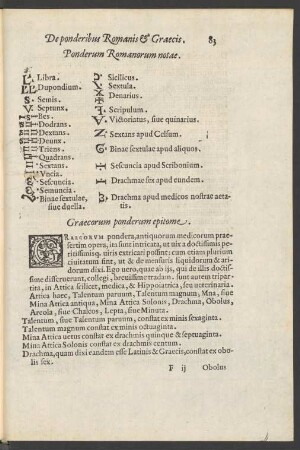 De ponderibus Romanis & Græcis. 83
Ponderum Romanorum notae.
Libra.
Dupondium.
S. Semis.
Septunx.
Bes.
Dodrans.
Dextans.
Deunx.
Triens.
Quadrans.
Sextans.
Vncia.
Sescuncia.
Semuncia.
Binæ sextulæ,
siue duella.
Sicilicus.
Sextula.
Denarius.
Scripulum.
V Victoriatus, siue quinarius.
Z Sextans apud Celsum.
Binæ sextulæ apud aliquos.
Sescuncia apud Scribonium.
Drachmæ sex apud eundem.
Drachma apud medicos nostræ æta-
tis.
Græcorum ponderum epitome.
GRAECORVM pondera, antiquorum medicorum præ-
sertim opera, ita sunt intricata, ut uix a doctissimis pe-
ritissimisq́; uiris extricari possint: cum etiam plurium
ciuitatum sint, ut & de mensuris liquidorum & ari-
dorum dixi. Ego uero, quæ ab ijs, qui de illis doctis-
sime disseruerunt, collegi, breuissime tradam: sunt autem testi-
monio, in Attica scilicet, medica, & Hippoiatrica, seu ueterinaria.
Attica hæc, Talentum paruum, Talentum magnum, Mna, siue
Mina Attica antiqua, Mina Attica Solonis, Drachma, Obolus,
Areola, siue Chalcos, Lepta, siue Minuta.
Talentum, siue Talentum paruum, constat ex minis sexaginta.
Talentum magnum constat ex minis octuaginta.
Mina Attica uetus constat ex drachmis quinque & septuaginta.
Mina Attica Solonis constat ex drachmis centum.
Drachma, quam dixi eandem esse Latinis & Græcis, constat ex obo-
lis sex.
F ij Obolus